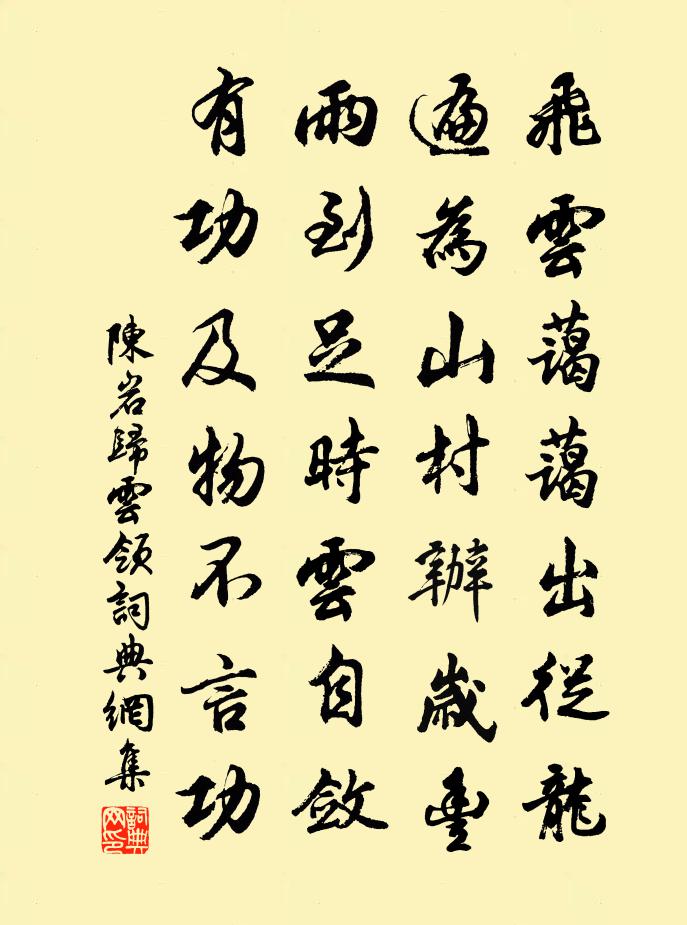 飛雲藹藹出從龍
遍為山村辦歲豐
雨到足時雲自斂
有功及物不言功
陳岩歸雲領詞典網集
詞典
网印